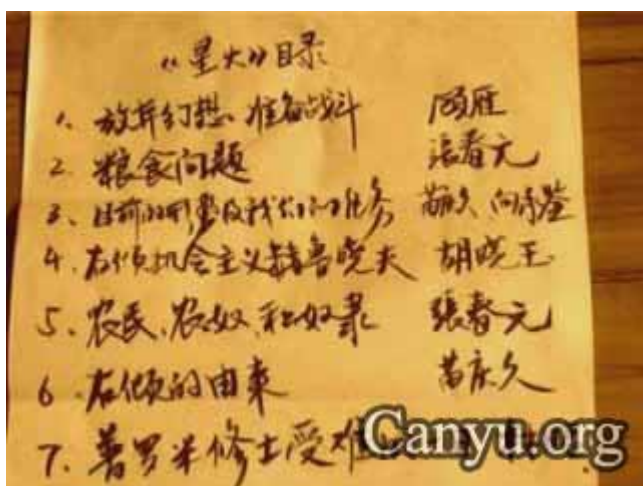 《星火》目录
1、放弃幻想、准备战斗 顾雁
2、粮食问题 張春元
3、目前的形势及我们的任务 苗庆久 向承鉴
4、右倾机会主义者鲁晓夫 胡晓玉
5、农民、农奴和奴隶 張春元
6、右倾的由来 苗庆久
7、普罗米修士受难
Canyu.org